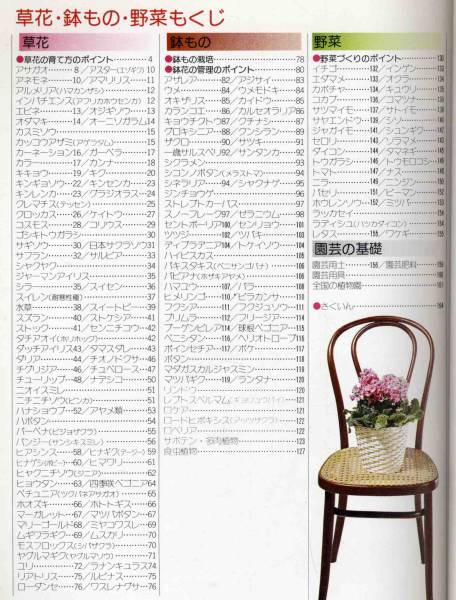 草花・鉢もの・野菜もくじ
草花
●草花の育て方のポイント…………4
アサガオ…………8／アスター(エゾギク)10
アネモネ…………10／アマリリス………11
アルメリア(ハマカンザシ)…………12
インパチェンス(アフリカホウセンカ)12
エビネ…………13／オジギソウ………13
オダマキ………14／オーニソガラム…14
カスミソウ…………15
カッコウアザミ(アゲラタム)………15
カーネーション16／ガーベラ…………17
カラー…………17／カンナ…………18
キキョウ………19／キク…………20
キンギョソウ…22／キンセンカ………23
キンレンカ……23／グラジオラス……24
クレマチス(テッセン)…………25
クロッカス……26／ケイトウ…………27
コスモス………28／コリウス…………29
ゴシキトウガラシ…………30
サギソウ………30／日本サクラソウ31
サフラン………32／サルビア…………33
シャクヤク…………34
ジャーマンアイリス…………35
シラー…………35／スイセン…………36
スイレン(耐寒性種)…………37
水草…………38／スイートピー……39
スズラン………40／ストケシア………41
ストック………41／センニチコウ……42
タチアオイ(ホリホック)…………42
ダッチアイリス43／タマスダレ………43
ダリア…………44／チオノドクサ……46
チグリジア……46／チュベローズ……47
チューリップ…48／ナデシコ…………50
ニオイスミレ…………51
ニチニチソウ(ビンカ)…………51
ハナショウブ…52／アヤメ類…………53
ハボタン…………54
バーベナ(ビジョザクラ)…………55
パンジー(サンシキスミレ)…………56
ヒアシンス……58／ヒナギク(デージー)59
ヒナゲシ(ポピー)60／ヒマワリ…………61
ヒャクニチソウ(ジニア)…………62
ヒョウタン……63／四季咲ベゴニア64
ペチュニア(ツクバネアサガオ)……65
ホオズキ………66／ホトトギス………66
マーガレット…67／マツバボタン……67
マリーゴールド68／ミヤコワスレ……69
ムギワラギク…69／ムスカリ…………70
モスフロックス(シバザクラ)………70
ヤグルマギク(ヤグルマソウ)………71
ユリ…………72／ラナンキュラス74
リアトリス……75／ルピナス…………75
ローダンセ……76／ワスレナグサ……76
鉢もの
●鉢もの栽培…………78
●鉢花の管理のポイント…………80
アザレア………82／アジサイ…………83
ウメ…………84／ウメモドキ………84
オキザリス……85／カイドウ…………85
カランコエ……86／カルセオラリア86
キョウチクトウ87／クチナシ…………87
グロキシニア…88／クンシラン………89
ザクロ…………90／サツキ…………91
一歳サルスベリ92／サンタンカ………92
シクラメン…………93
シコンノボタン(メラストマ)………94
シネラリア……94／シャクナゲ………95
ジンチョウゲ…………96
ストレプトカーパス…………97
スノーフレーク97／ゼラニウム………98
セントポーリア100／センリョウ……101
ツツジ…………102／ツバキ…………103
ティブラデニア104／トケイソウ……104
ハイビスカス…………105
パキスタキス(ベニサンゴバナ)……106
1ピアナ(ホザキアヤメ)…………106
ハマユウ………107／バラ…………108
ヒメリンゴ……110／ピラカンサ……110
フクシア………111／フクジュソウ…111
プリムラ………112／フリージア……113
ブーゲンビレア114／球根ベゴニア…115
ペニシタン……116／ヘリオトロープ116
ポインセチア…117／ボケ…………117
ボタン…………118
マダガスカルジャスミン…………119
マツバギク……119／ランタナ………120
リンドウ…………120
レプトスペルマム(ギョリュウバイ)
ロケア…………121
ロードヒポキシス(アッツザクラ)
ロベリア…………122
サボテン・多肉植物…………123
食虫植物…………127
野菜
●野菜づくりのポイント…………130
イチゴ…………132／インゲン………133
エダマメ………133／オクラ…………134
カボチャ………134／キュウリ………135
コカブ…………136／サツマイモ……137
サヤエンドウ…139／シソ…………140
ジャガイモ……141／シュンギク……142
セロリ…………142／ソラマメ………143
ダイコン………144／タマネギ………145
トウガラシ……146／トウモロコシ…146
トマト…………147／ナス…………148
ニラ…………149／ニンジン………150
パセリ…………151／ピーマン………152
ホウレンソウ…152／ミツバ…………153
ラッカセイ…………154
ラディシュ(ハツカダイコン)………154
レタス…………155／ワケギ…………155
園芸の基礎
園芸用土………156／園芸肥料………159
園芸用具…………160
全国の植物園…………161
●さくいん…………164